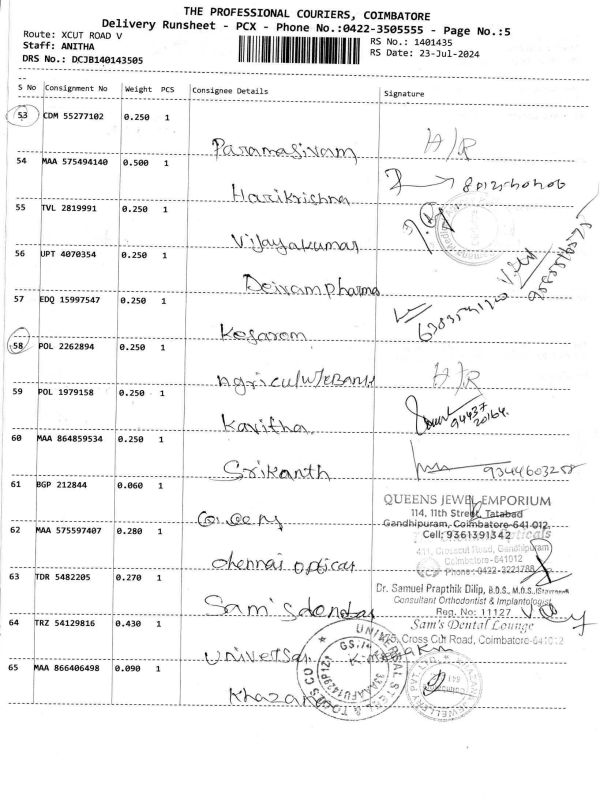 THE PROFESSIONAL COURIERS, COIMBATORE
Delivery Runsheet - PCX - Phone No.:0422-3505555 - Page No.:5
Route: XCUT ROAD V
RS No.: 1401435
Staff: ANITHA
RS Date: 23-Jul-2024
DRS No.: DCJB140143505
S No Consignment No Weight PCS Consignee Details Signature
53 CDM 55277102 0.250 1
Paramasivam H/R
54 MAA 575494140 0.500 1
Harikrishna
55 TVL 2819991 0.250 1
Vijayakumar
56 UPT 4070354 0.250 1
Deivam pharma
57 EDQ 15997547 0.250 1
Kesarom
58 POL 2262894 0.250 1
H/R
59 POL 1979158 0.250 1
Kavitha 94437 20164
60 MAA 864859534 0.250 1
Srikanth
61 BGP 212844 0.060 1
QUEENS JEWEL EMPORIUM
114, 11th Street, Tatabad
Gandhipuram, Coimbatore-641 012.
Cell: 9361391342
62 MAA 575597407 0.280 1
411, Crosscut Road, Gandhipuram
Coimbatore-641012
Phone: 0422-3221788
chennai opticas
63 TDR 5482205 0.270 1
Dr. Samuel Prapthik Dilip, B.D.S., M.D.S.,
Consultant Orthodontist & Implantologist
Reg. No: 11127
Sam's dental
64 TRZ 54129816 0.430 1
Sam's Dental Lounge
Cross Cut Road, Coimbatore-641012
Universal
UNIVERSAL STEEL & TOOLS CO
65 MAA 866406498 0.090 1
Khazana
JEWELLERY PVT. LTD.